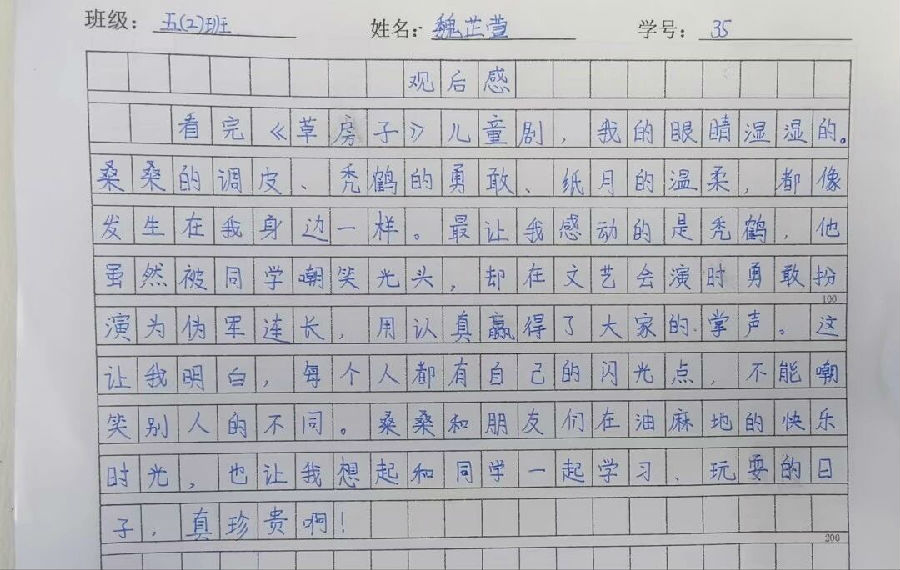 班级：五(2)班 姓名：魏芷萱 学号：35
观后感
看完《草房子》儿童剧，我的眼睛湿湿的。
桑桑的调皮、秃鹤的勇敢、纸月的温柔，都像
发生在我身边一样。最让我感动的是秃鹤，他
虽然被同学嘲笑光头，却在文艺会演时勇敢扮
100
演为伪军连长，用认真赢得了大家的掌声。这
让我明白，每个人都有自己的闪光点，不能嘲
笑别人的不同。桑桑和朋友们在油麻地的快乐
时光，也让我想起和同学一起学习、玩耍的日
子，真珍贵啊！
200